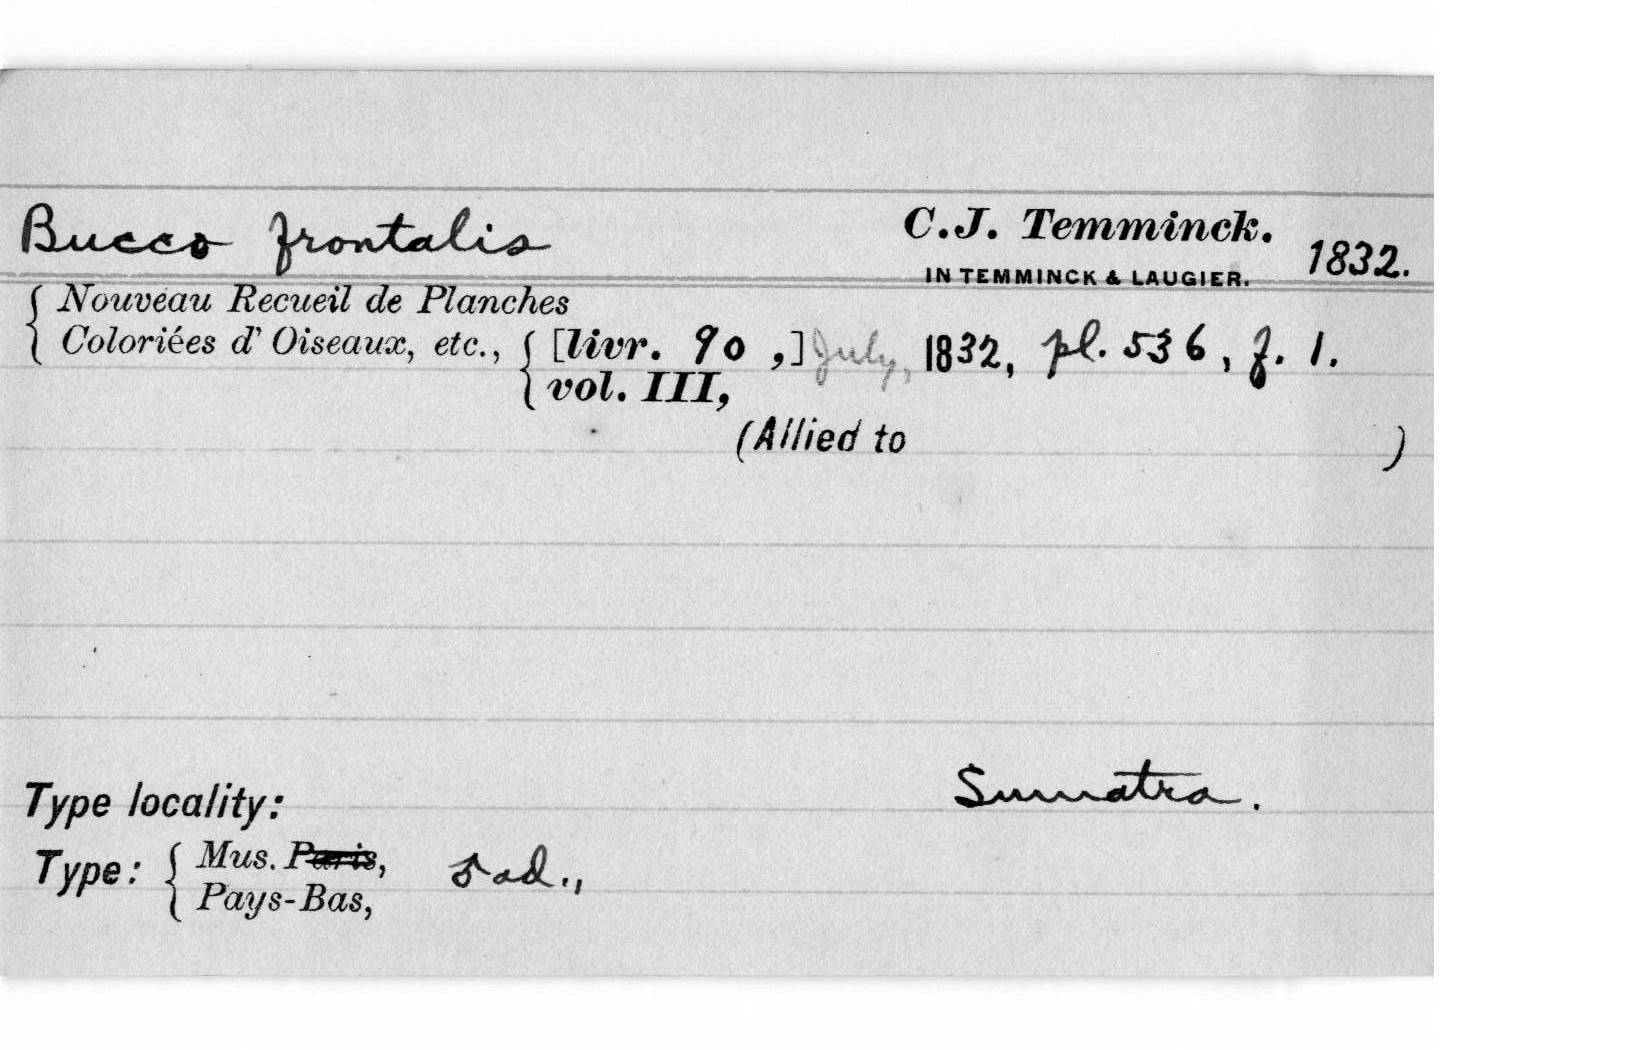 Bucco frontalis C.J. Temminck. 1832.
IN TEMMINCK & LAUGIER.
{ Nouveau Recueil de Planches
Coloriées d' Oiseaux, etc., { [livr. 90 ,] July, 1832, pl. 536, f. 1.
vol. III,
(Allied to )
Type locality: Sumatra.
Type: { Mus. Paris, ad.,
Pays-Bas,